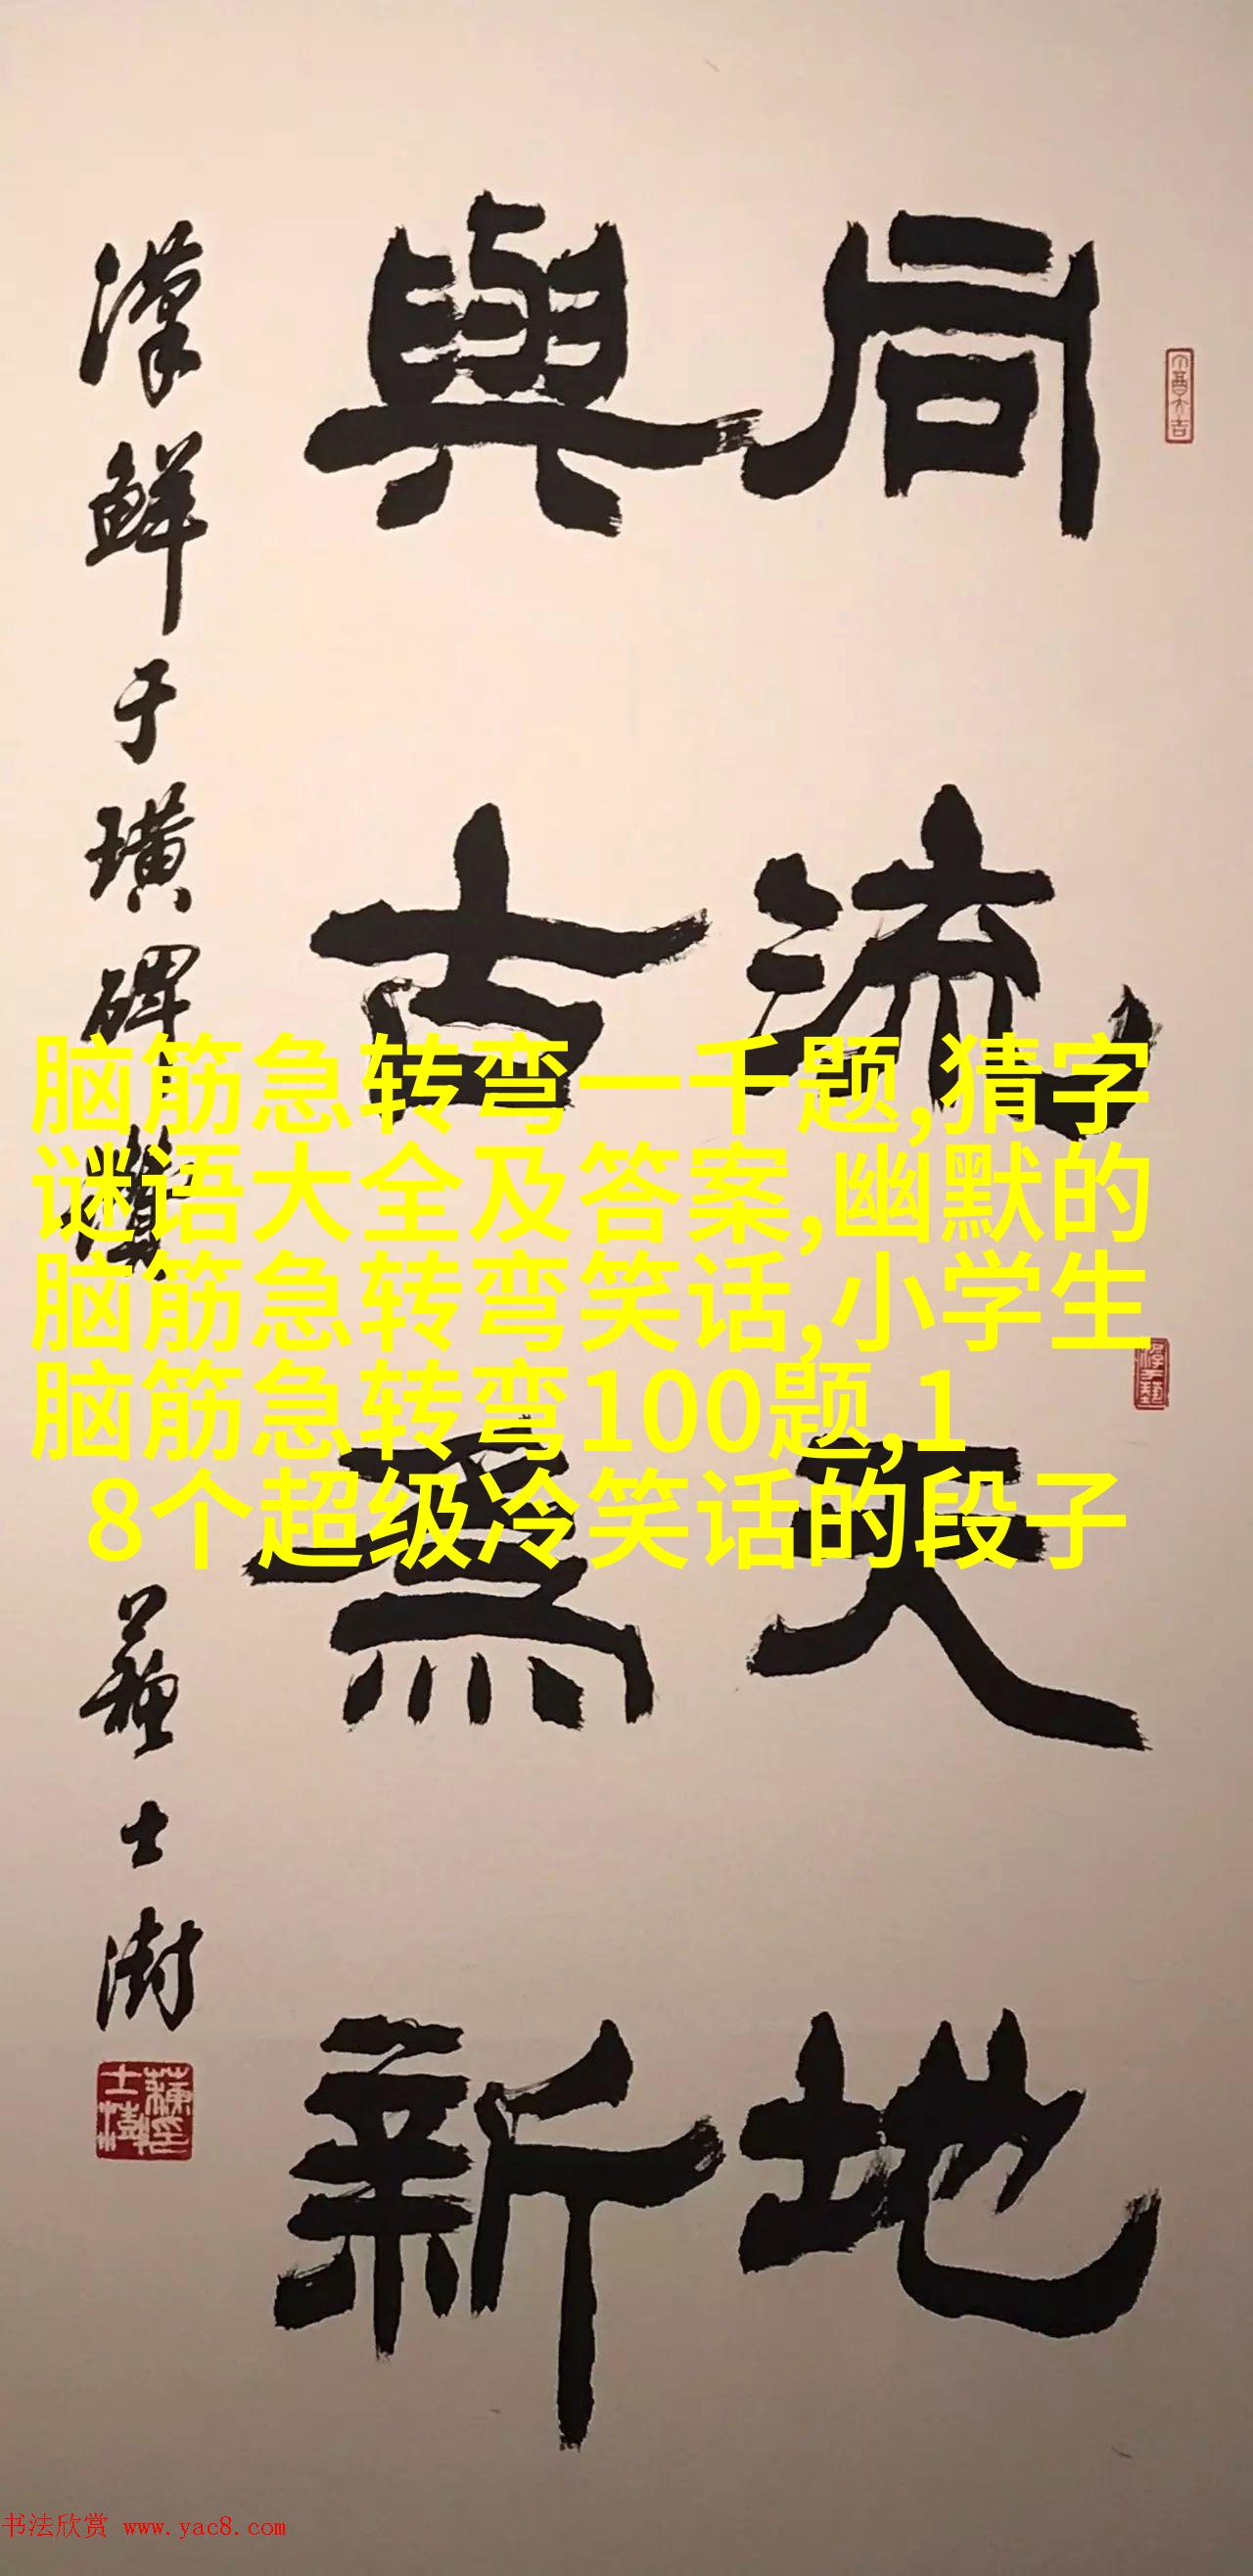 同流天地
與古為新
漢鮮于璜碑
蘇士澍
脑筋急转弯一千题,猜字
谜语大全及答案,幽默的
脑筋急转弯笑话,小学生
脑筋急转弯100题,1
8个超级冷笑话的段子
书法欣赏 www.yac8.com